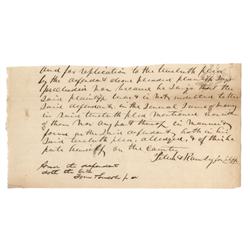 And for replication to the twelveth plea
by the defendant above pleaded plaintiff says
precludi non because he says that the
said plaintiff was & is not indebted to the
said defendants in the several sums of money
in said twelveth plea mentioned
them nor any part thereof in manner &
form as the said defendants hath in his
said twelveth plea alleged, & of this he
puts himself on the Country
for plff
And the defendant
doth the like